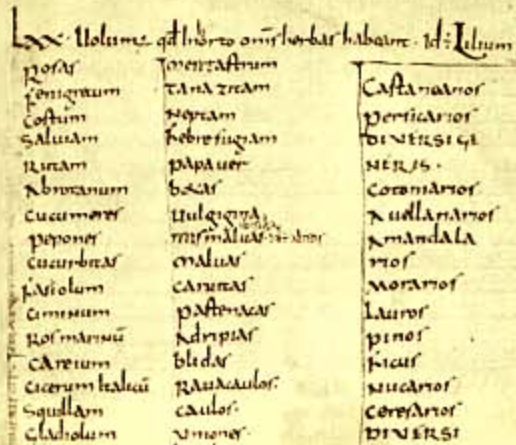 Lxx. Uolum; qđ in orto omīs herbas habeant. Id: Lilium
Rosas
fenigrecum
Costum
Saluiam
Rutam
Abrotanum
Cucumeres
pepones
Cucurbitas
fasiolum
Ciminum
Rosmarinū
Careium
Cicerum Italicū
Squillam
Gladiolum
mentastrum
Tanazitam
Neptam
febrefugiam
papauer
betas
Uulgigina
maluas
Caruitas
pastenacas
Adripias
blidas
Rauacaulos.
Caulos.
Uniones.
Castanearios
persicarios
DIVERSI GE
NERIS.
Cotoniarios.
Auellanarios
Amandala
rios
Morarios
Lauros
pinos
ficus
Nucarios
Ceresarios
DIVERSI